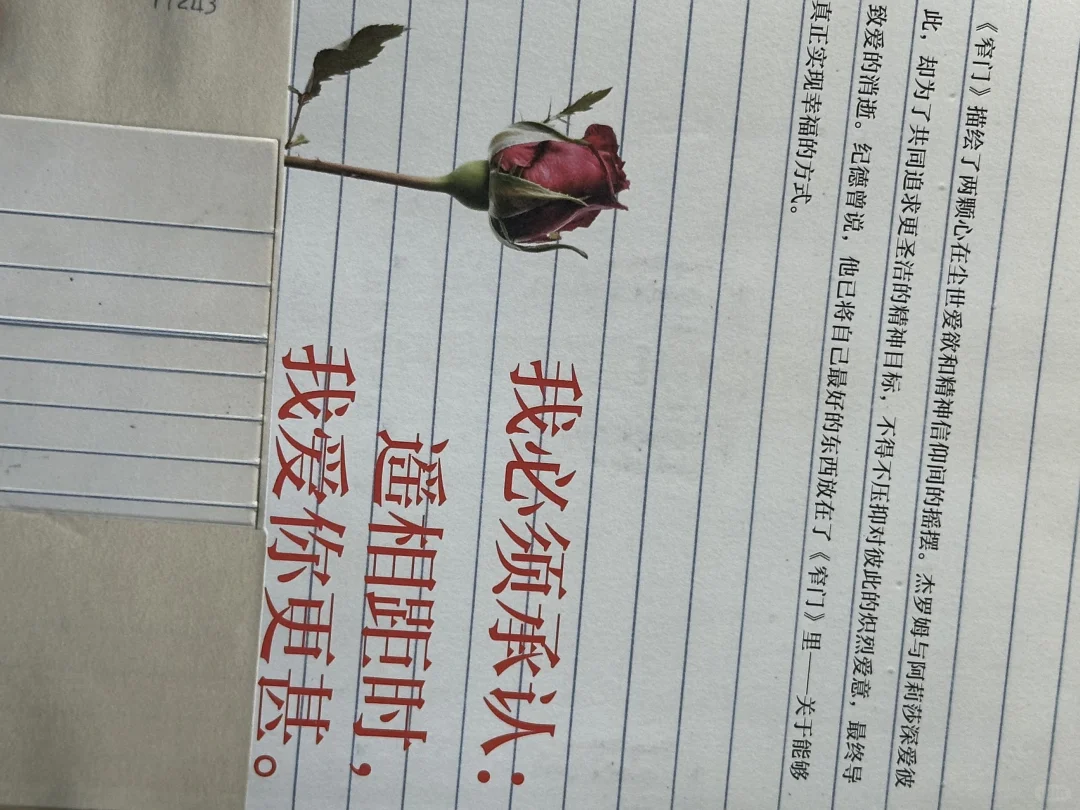 《窄门》描绘了两颗心在尘世爱欲和精神信仰间的摇摆。杰罗姆与阿莉莎深爱彼
此，却为了共同追求更圣洁的精神目标，不得不压抑对彼此的炽烈爱意，最终导
致爱的消逝。纪德曾说，他已将自己最好的东西放在了《窄门》里——关于能够
真正实现幸福的方式。
我必须承认：
遥相距时，
我爱你更甚。